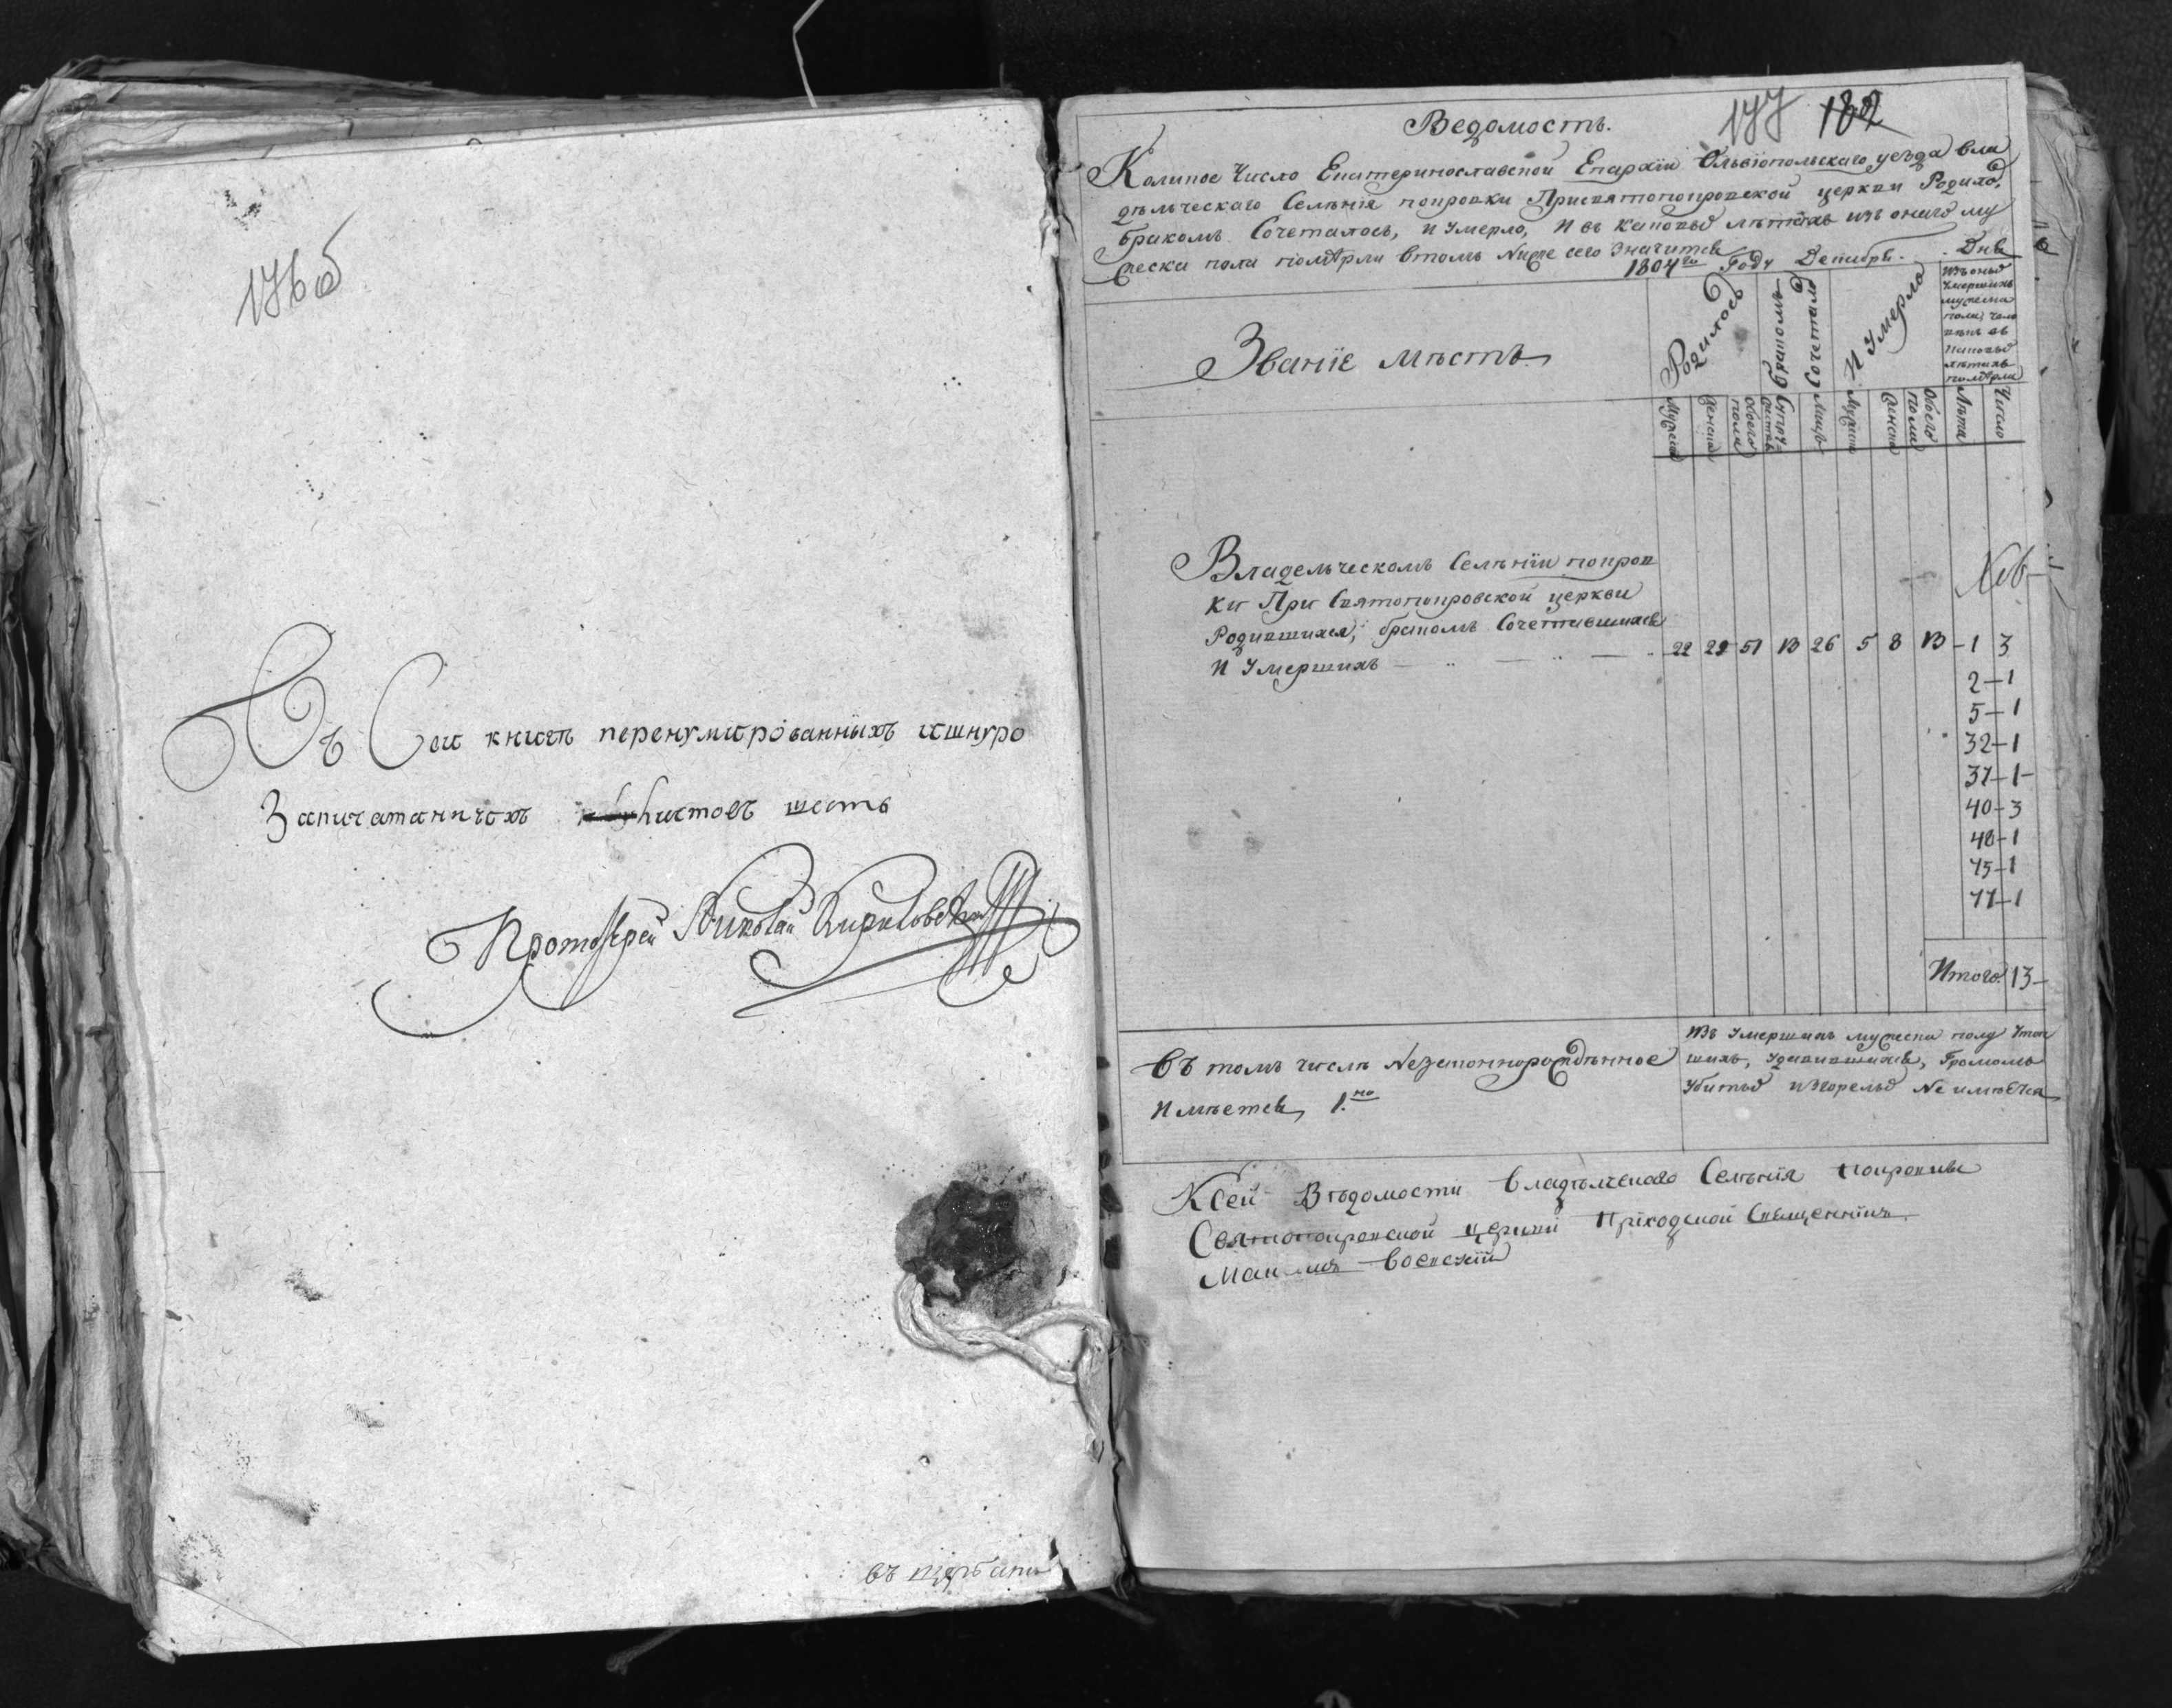 176об
Въ Сеи книгѣ перенумированныхъ ишнуро
Запичатанныхъ листовъ шесть
Протоіерей Николай
въ щербани
177 182
Ведомость.
Коликое число Екатеринославской Епархіи Ольвіопольскаго уезда вла
дѣльческаго Селѣнія покровки Присвятопокровской церкви Родило,
бракомъ Сочеталось, и Умерло, и въ каковыхъ лѣтахъ изъ онаго му
жеска пола помѣрли втомъ Ниже сего значится
1804го Году Декабря Дня
Званіе мѣстъ
Родилось
бракомъ Сочеталось
И Умерло
изъ оныхъ
Умершихъ
мужеска
пола, чело
вѣкъ въ
каковыхъ
лѣтахъ
помѣрли
Мужеска
женска
обоего пола
Супружествъ
Лицъ
Мужеска
Женска
Обоего пола
Лѣта
Число
Владельческомъ Селѣніи покров
ки При Святопокровской церкви
Родившихся, бракомъ Сочетавшихся
И Умершихъ 22 29 51 13 26 5 8 13 - 1 3
2 - 1
5 - 1
32 - 1
37 - 1 -
40 - 3
48 - 1
75 - 1
77 - 1
Итого 13 -
Въ томъ числѣ Незаконнорожденное
Имѣетса, 1.но
Изъ Умершихъ мужеска полу Утоп
шихъ, Удавившихся, Громомъ
Убитыхъ изгорелыхъ Не имѣется
Ксей Вѣдомости владѣлческаго Селѣнія покровки
Святопокровской церкви Приходской Священникъ